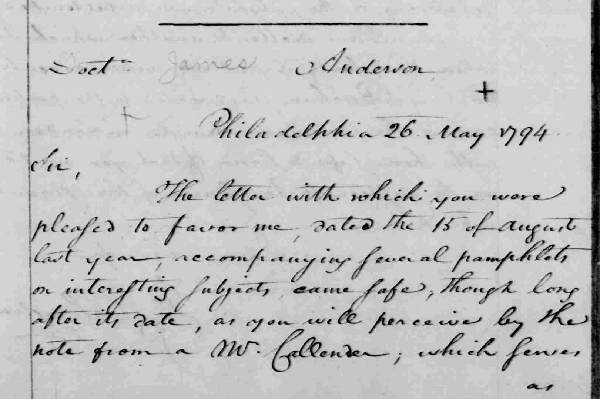 Doctr James Anderson
Philadelphia 26 May 1794.
Sir,
The letter with which you were
pleased to favor me, dated the 15 of August
last year, accompanying several pamphlets
on interesting subjects, came safe, though long
after its date, as you will perceive by the
note from a Mr. Callender; which serves
as